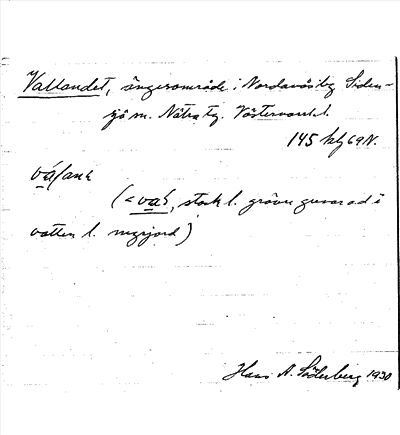 Vallandet, ängesområde i Nordanås by Siden-
sjö sn. Nätra tg. Västernorrl. l.
145 kbf 69 N.
vá̱lanε
(< va̱l, stock l. gren
vatten l. myrjord)
Hans A. Söderberg 1930